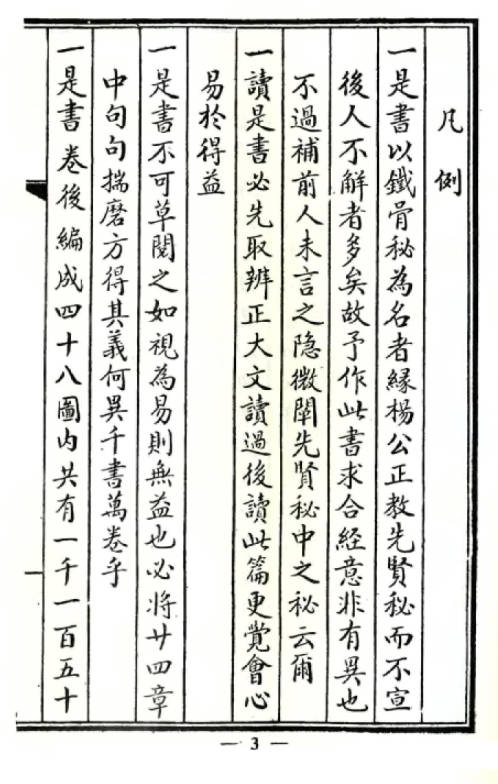 凡例
一是書以鐵骨秘為名者緣楊公正教先賢秘而不宣
後人不解者多矣故予作此書求合經意非有異也
不過補前人未言之隐微闡先賢秘中之秘云爾
一讀是書必先取辨正大文讀過後讀此篇更覺會心
易於得益
一是書不可草閱之如視為易則無益也必將廿四章
中句句揣磨方得其義何異千書萬卷乎
一是書卷後編成四十八圖内共有一千一百五十
— 3 —